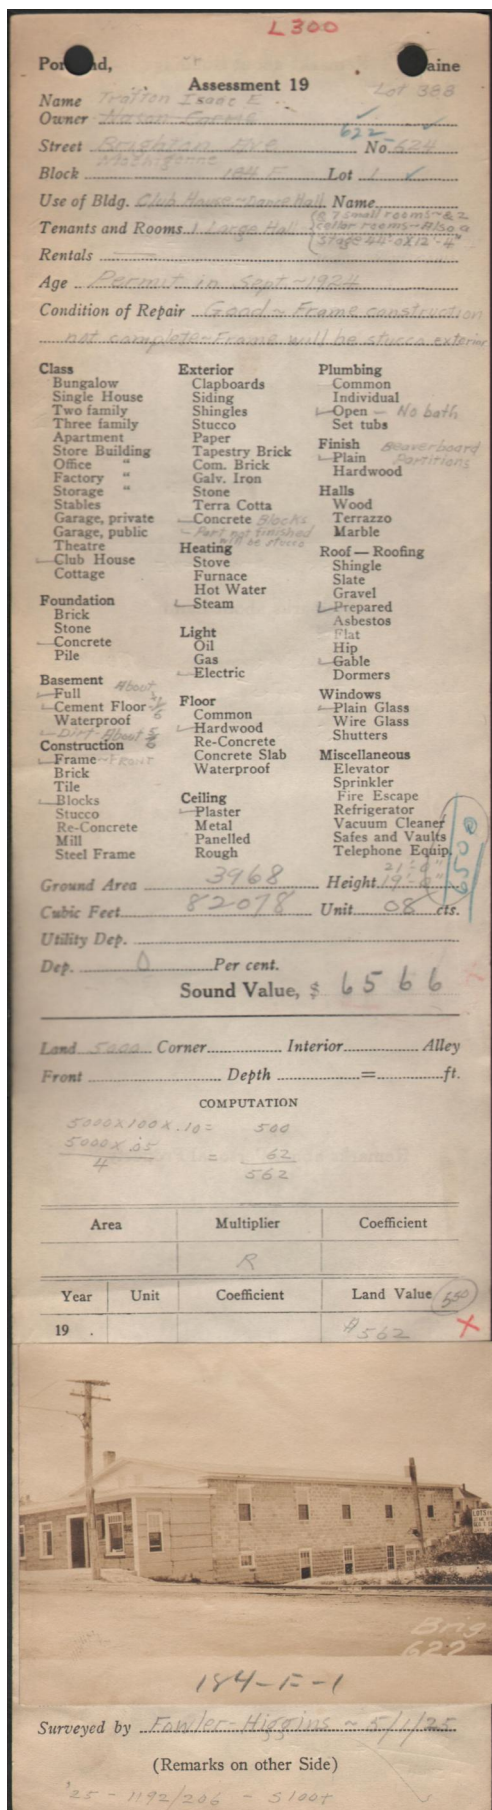 L300
Portland, Maine
Assessment 19 Lot 388
Name Tratton Isaac E.
Owner
622
Street Brighton Ave No. 624
Machigonne
Block 184 F Lot 1
Use of Bldg. Club House ~ Dance Hall Name
Tenants and Rooms 1 Large Hall (& 7 small rooms ~ & 2
cellar rooms ~ Also a
Stage 44'-0 x 12'-4"
Rentals
Age Permit in Sept. ~ 1924
Condition of Repair Good ~ Frame construction
not complete ~ Frame will be stucco exterior
Class
Bungalow
Single House
Two family
Three family
Apartment
Store Building
Office "
Factory "
Storage "
Stables
Garage, private
Garage, public
Theatre
Club House
Cottage
Foundation
Brick
Stone
Concrete
Pile
Basement
Full About
Cement Floor 1/6
Waterproof
Dirt - About 5/6
Construction
Frame ~ Front
Brick
Tile
Blocks
Stucco
Re-Concrete
Mill
Steel Frame
Exterior
Clapboards
Siding
Shingles
Stucco
Paper
Tapestry Brick
Com. Brick
Galv. Iron
Stone
Terra Cotta
Concrete Blocks
- Part not finished
will be stucco
Heating
Stove
Furnace
Hot Water
Steam
Light
Oil
Gas
Electric
Floor
Common
Hardwood
Re-Concrete
Concrete Slab
Waterproof
Ceiling
Plaster
Metal
Panelled
Rough
Plumbing
Common
Individual
Open - No bath
Set tubs
Finish Beaverboard
Plain Partitions
Hardwood
Halls
Wood
Terrazzo
Marble
Roof — Roofing
Shingle
Slate
Gravel
Prepared
Asbestos
Flat
Hip
Gable
Dormers
Windows
Plain Glass
Wire Glass
Shutters
Miscellaneous
Elevator
Sprinkler
Fire Escape
Refrigerator
Vacuum Cleaner
Safes and Vaults
Telephone Equip.
6500
21'-0"
Ground Area 3968 Height 19'-6"
Cubic Feet 82078 Unit 08 cts.
Utility Dep.
Dep. 0 Per cent.
Sound Value, $ 6566
Land 5000 Corner Interior Alley
Front Depth = ft.
COMPUTATION
5000 x 100 x .10 = 500
5000 x .05 = 62
4
562
Area Multiplier Coefficient
R
Year Unit Coefficient Land Value 550
19 . $562 X
LOTS
Brig
622
184-F-1
Surveyed by Fowler-Higgins ~ 5/1/25
(Remarks on other Side)
'25 - 1192/206 - $100+